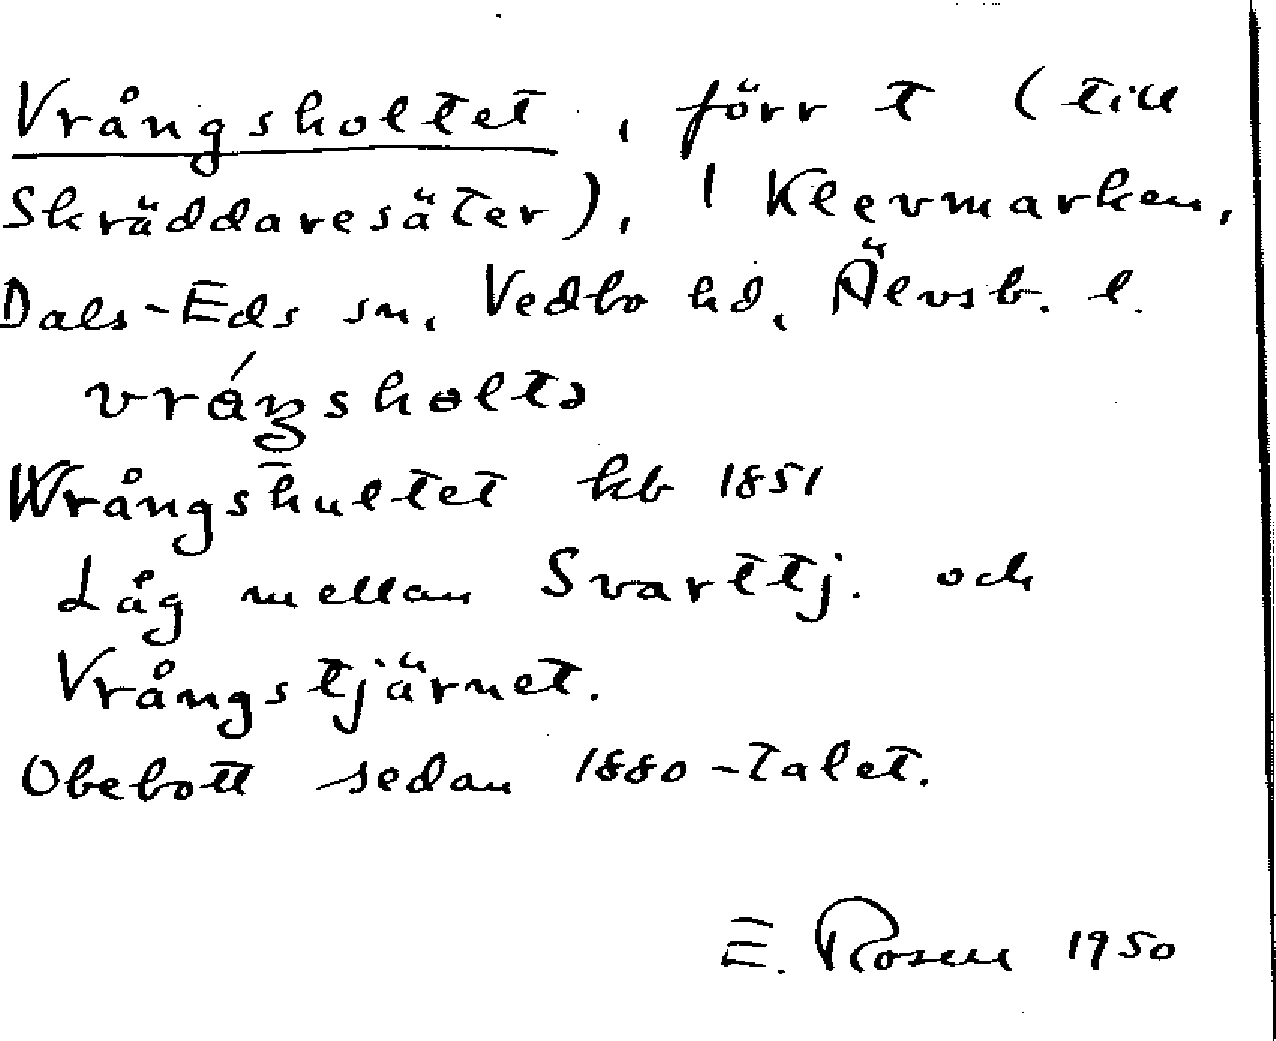 Vrångsholtet, förr t (till
Skräddaresäter), 1 Klevmarken,
Dals-Eds sn, Vedbo hd, Älvsb. l.
Wrångshultet kb 1851
Låg mellan Svarttj. och
Vrångstjärnet.
Obebott sedan 1880-talet.
E. Rosen 1950